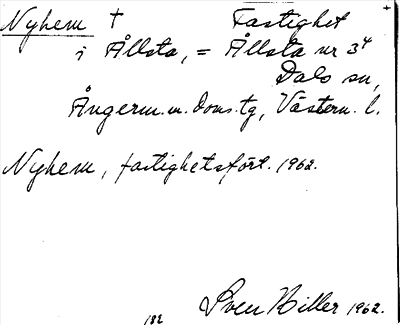 Nyhem † Fastighet
i Ållsta, = Ållsta nr 3⁴
Dals sn,
Ångerm. m. doms.tg, Västern. l.
Nyhem, fastighetsfört. 1962.
Sven Hiller 1962.
182